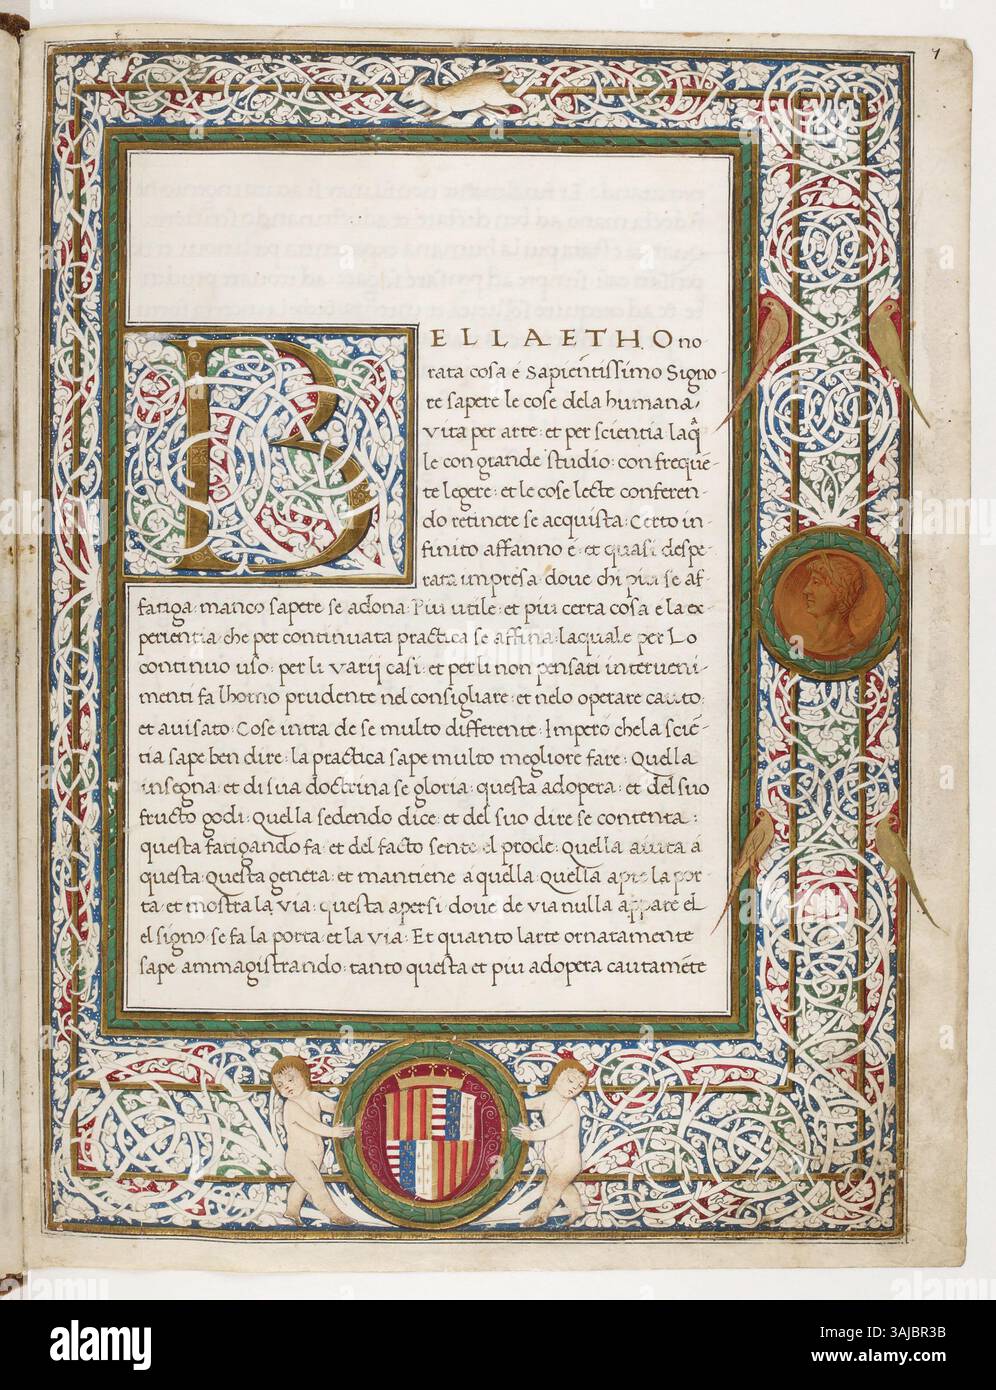 1
BELLA ET HOno
rata cosa é Sapientissimo Signo
re sapere le cose dela humana
vita per arte: et per scientia laq̃
le con grande studio: con frequẽ
te legere: et le cose lecte conferen-
do retinere se acquista: Certo in-
finito affanno é: et quasi despe-
rata impresa: doue chi piu se af
fatiga: manco sapere se adona: Piu utile: et piu certa cosa é la ex
perientia: che per continuata practica se affina: laquale per Lo
continuo uso: per li varij casi: et per li non pensati interueni-
menti fa lhomo prudente nel consigliare: et nelo operare cauto:
et auisato: Cose intra de se multo differente: Impero che la sciẽ-
tia sape ben dire: la practica sape multo megliore fare: Quella
insegna: et di sua doctrina se gloria: questa adopera: et del suo
fructo godi: Quella sedendo dice: et del suo dire se contenta:
questa fatigando fa: et del facto sente el prode: Quella aiuta á
questa: Questa genera: et mantiene a quella: Quella apre la por
ta: et mostra la via: questa apersi: doue de via nulla appare el
el signo: se fa la porta: et la via: Et quanto larte ornatamente
sape ammagistrando: tanto questa et piu adopera cautamẽte
alamy
Image ID: 3AJBR3B
www.alamy.com